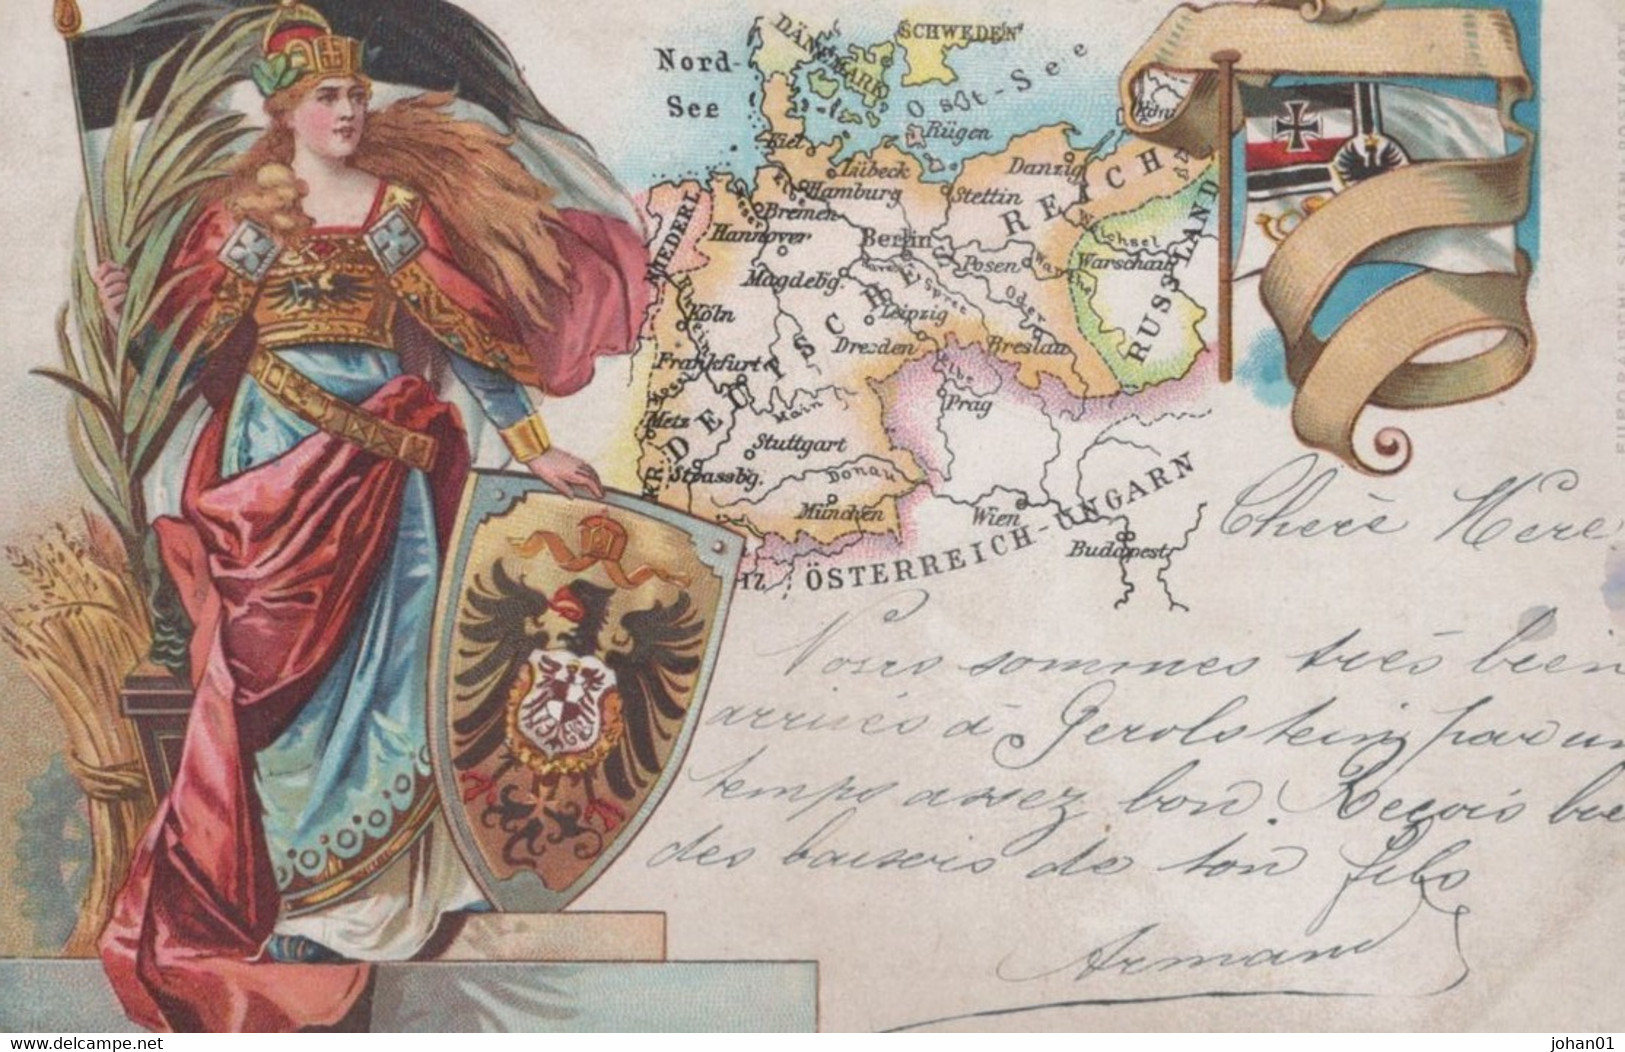 SCHWEDEN
DÄNEMARK
Nord-
See
Ost-See
Rügen
Kiel
Lübeck
Danzig
Hamburg
Stettin
Bremen
NIEDERL
Hannover
Berlin
Weichsel
RUSSLAND
Posen
Warthe
Warschau
Magdebg.
Havel
Spree
Oder
Köln
Rhein
Leipzig
DEUTSCHES REICH
Dresden
Breslau
Frankfurt
Mosel
Elbe
Main
Prag
Metz
Stuttgart
Strassbg.
Donau
München
Wien
Budapest
IZ
ÖSTERREICH-UNGARN
FR
EUROPÄISCHE STAATEN-POSTKARTE
Chère Mère
Nous sommes très bien
arrivés à Gerolstein par un
temps assez bon. Reçois
des baisers de ton fils
Armand
delcampe.net
johan01